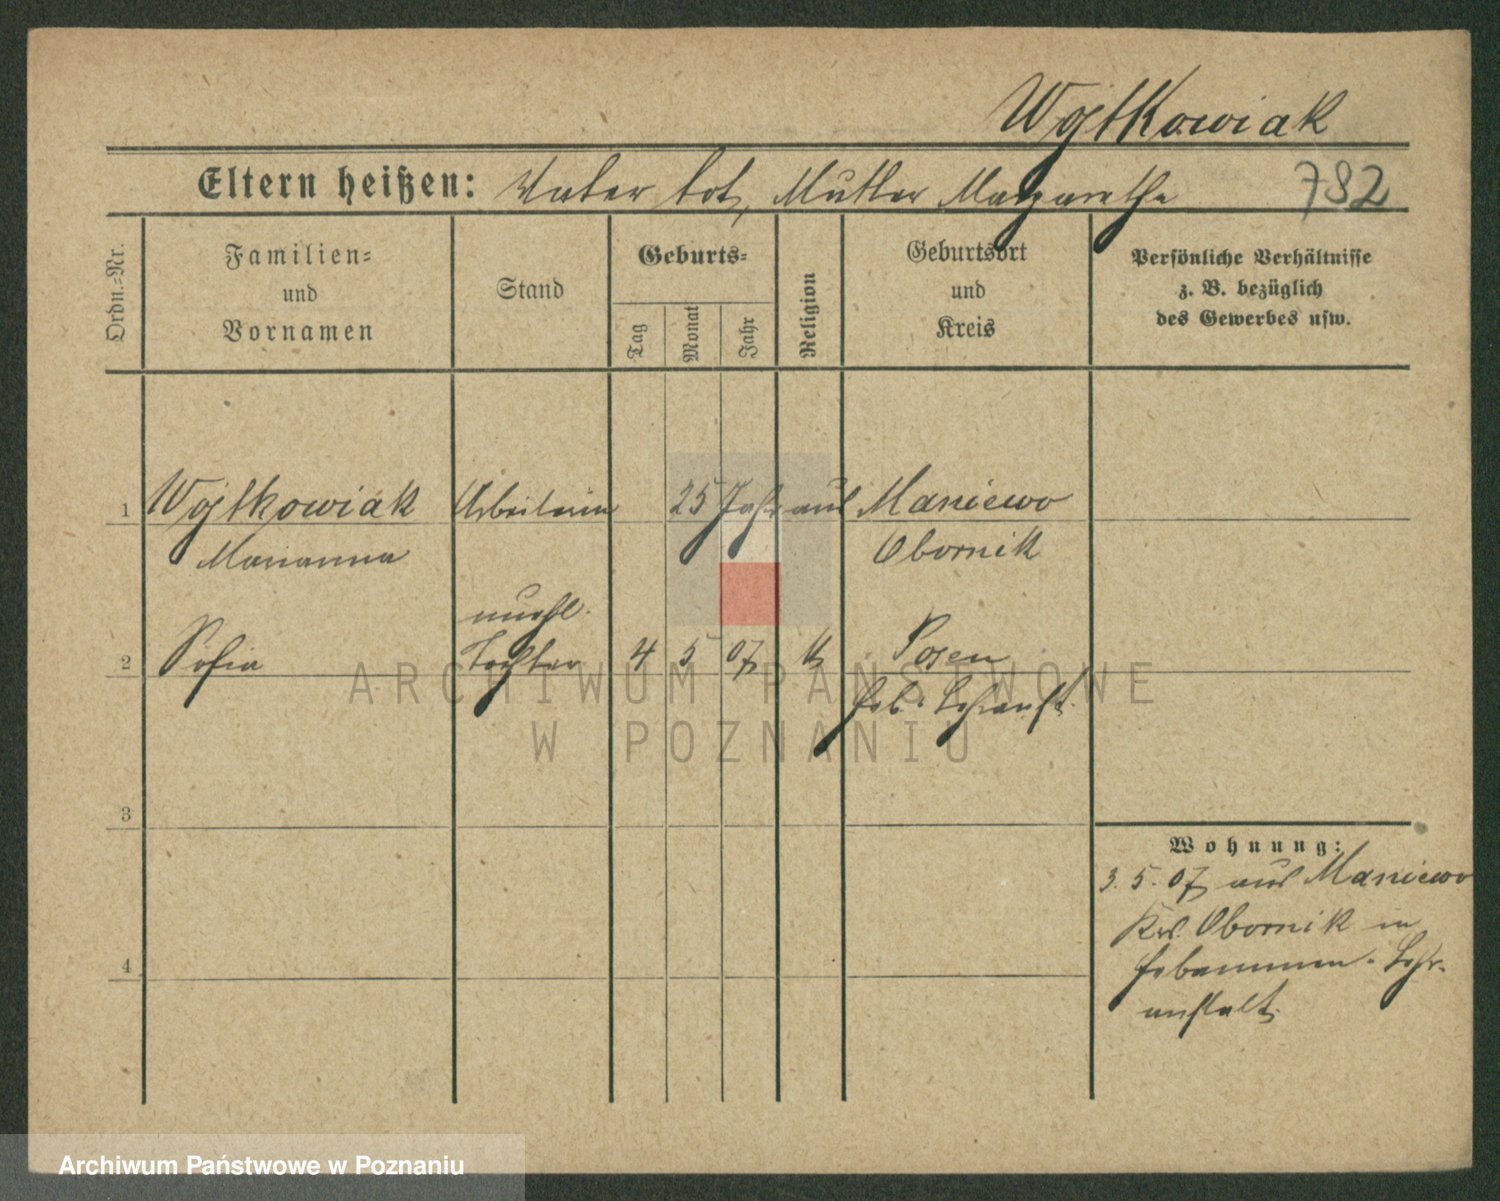 Wojtkowiak
Eltern heißen: Vater tot, Mutter Margarethe 782
Ordn.=Nr.
Familien=
und
Vornamen
Stand
Geburts=
Tag
Monat
Jahr
Religion
Geburtsort
und
Kreis
Persönliche Verhältnisse
z. B. bezüglich
des Gewerbes usw.
1 Wojtkowiak Arbeiterin 25 Jahr aus Maniewo
Marianna Obornik
unehl.
2 Sofia Tochter 4 5 07 k Posen
Heb. Lehranst.
3
4
Wohnung:
3. 5. 07 aus Maniewo
Krs. Obornik in
Hebammen-Lehr-
anstalt
ARCHIWUM PAŃSTWOWE
W POZNANIU
Archiwum Państwowe w Poznaniu